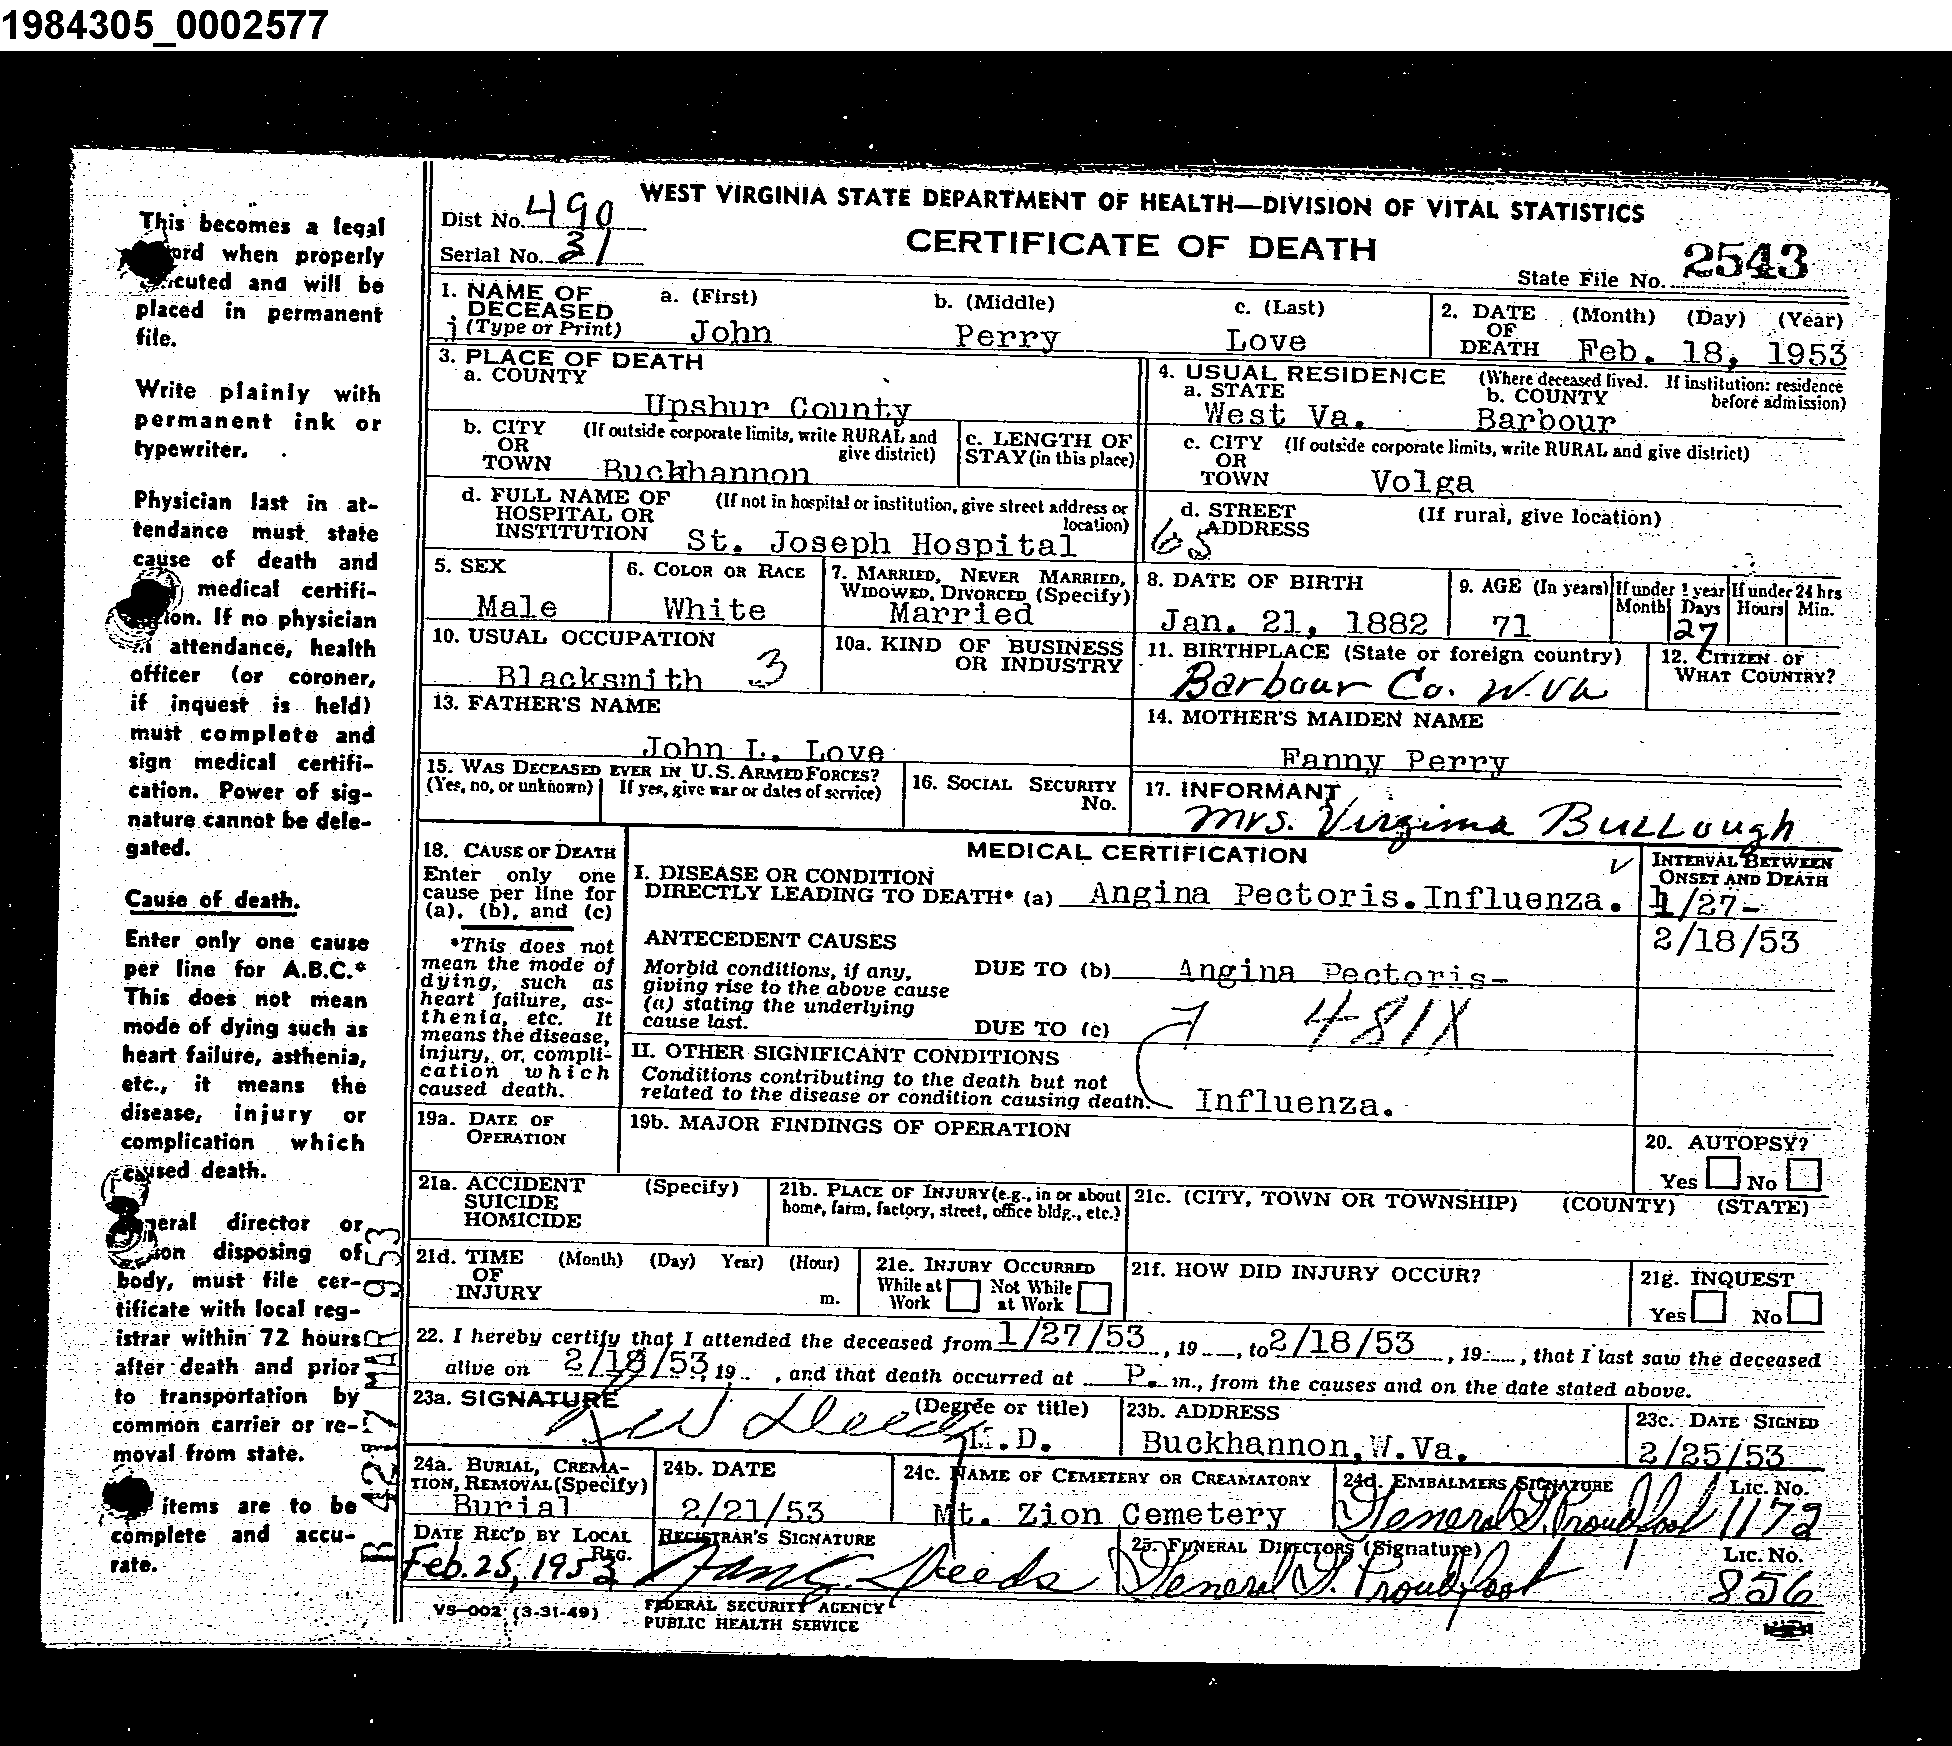 1984305_0002577
This becomes a legal
when properly
and will be
placed in permanent
file.
Write plainly with
permanent ink or
typewriter.
Physician last in at-
tendance must state
cause of death and
medical certifi-
If no physician
attendance, health
officer (or coroner,
if inquest is held)
must complete and
sign medical certifi-
cation. Power of sig-
nature cannot be dele-
gated.
Cause of death.
Enter only one cause
per line for A.B.C.*
This does not mean
mode of dying such as
heart failure, asthenia,
etc., it means the
disease, injury or
complication which
caused death.
director or
disposing of
body, must file cer-
tificate with local reg-
istrar within 72 hours
after death and prior
to transportation by
common carrier or re-
moval from state.
items are to be
complete and accu-
rate.
WEST VIRGINIA STATE DEPARTMENT OF HEALTH—DIVISION OF VITAL STATISTICS
Dist No. 490
CERTIFICATE OF DEATH
Serial No. 31
State File No. 2543
1. NAME OF DECEASED (Type or Print) a. (First) b. (Middle) c. (Last)
John Perry Love
2. DATE OF DEATH (Month) (Day) (Year)
Feb. 18, 1953
3. PLACE OF DEATH
a. COUNTY
Upshur County
4. USUAL RESIDENCE (Where deceased lived. If institution: residence before admission)
a. STATE b. COUNTY
West Va. Barbour
b. CITY OR TOWN (If outside corporate limits, write RURAL and give district)
Buckhannon
c. LENGTH OF STAY (in this place)
c. CITY OR TOWN (If outside corporate limits, write RURAL and give district)
Volga
d. FULL NAME OF HOSPITAL OR INSTITUTION (If not in hospital or institution, give street address or location)
St. Joseph Hospital
d. STREET ADDRESS (If rural, give location)
65
5. SEX
Male
6. COLOR OR RACE
White
7. MARRIED, NEVER MARRIED, WIDOWED, DIVORCED (Specify)
Married
8. DATE OF BIRTH
Jan. 21, 1882
9. AGE (In years) If under 1 year If under 24 hrs
Month Days Hours Min.
71 27
10. USUAL OCCUPATION
Blacksmith 3
10a. KIND OF BUSINESS OR INDUSTRY
11. BIRTHPLACE (State or foreign country)
Barbour Co. W.Va
12. CITIZEN OF WHAT COUNTRY?
13. FATHER'S NAME
John L. Love
14. MOTHER'S MAIDEN NAME
Fanny Perry
15. WAS DECEASED EVER IN U.S. ARMED FORCES?
(Yes, no, or unknown) If yes, give war or dates of service)
16. SOCIAL SECURITY No.
17. INFORMANT
Mrs. Virginia Bullough
18. CAUSE OF DEATH
Enter only one
cause per line for
(a), (b), and (c)
*This does not
mean the mode of
dying, such as
heart failure, as-
thenia, etc. It
means the disease,
injury, or compli-
cation which
caused death.
MEDICAL CERTIFICATION
I. DISEASE OR CONDITION
DIRECTLY LEADING TO DEATH* (a) Angina Pectoris.Influenza.
INTERVAL BETWEEN ONSET AND DEATH
1/27-
2/18/53
ANTECEDENT CAUSES
Morbid conditions, if any,
giving rise to the above cause
(a) stating the underlying
cause last.
DUE TO (b) Angina Pectoris-
DUE TO (c) 7 481X
II. OTHER SIGNIFICANT CONDITIONS
Conditions contributing to the death but not
related to the disease or condition causing death. Influenza.
19a. DATE OF OPERATION
19b. MAJOR FINDINGS OF OPERATION
20. AUTOPSY?
Yes No
21a. ACCIDENT SUICIDE HOMICIDE (Specify)
21b. PLACE OF INJURY (e.g., in or about home, farm, factory, street, office bldg., etc.)
21c. (CITY, TOWN OR TOWNSHIP) (COUNTY) (STATE)
21d. TIME OF INJURY (Month) (Day) Year) (Hour) m.
21e. INJURY OCCURRED
While at Work Not While at Work
21f. HOW DID INJURY OCCUR?
21g. INQUEST
Yes No
22. I hereby certify that I attended the deceased from 1/27/53, 19 , to 2/18/53, 19 , that I last saw the deceased
alive on 2/18/53, 19 , and that death occurred at P. m., from the causes and on the date stated above.
23a. SIGNATURE (Degree or title)
M.D.
23b. ADDRESS
Buckhannon,W.Va.
23c. DATE SIGNED
2/25/53
24a. BURIAL, CREMA-
TION, REMOVAL (Specify)
Burial
24b. DATE
2/21/53
24c. NAME OF CEMETERY OR CREAMATORY
Mt. Zion Cemetery
24d. EMBALMERS SIGNATURE Lic. No.
Proudfoot 1172
DATE REC'D BY LOCAL REG.
Feb. 25, 1953
REGISTRAR'S SIGNATURE
25. FUNERAL DIRECTORS (Signature) Lic. No.
Proudfoot 856
VS-002 (3-31-49)
FEDERAL SECURITY AGENCY
PUBLIC HEALTH SERVICE